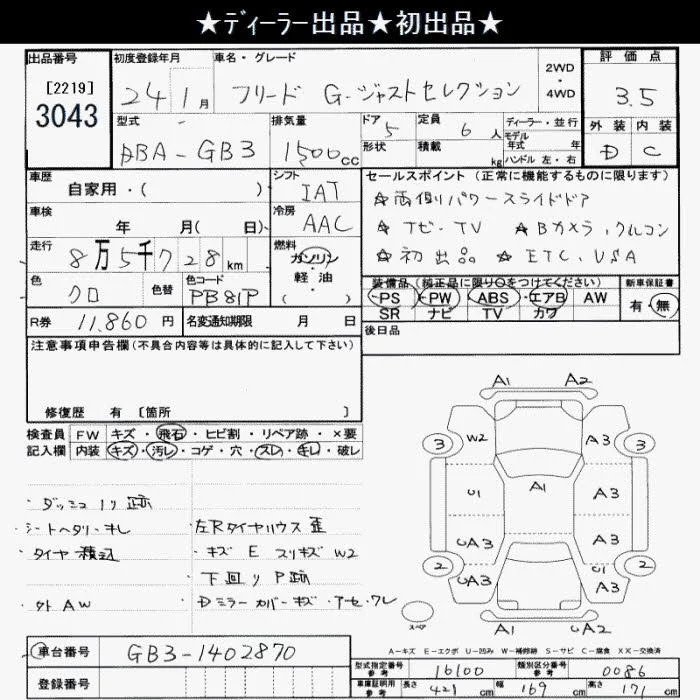 ★ディーラー出品★初出品★
出品番号
[2219]
3043
初度登録年月
24 1月
車名・グレード
フリード G-ジャストセレクション
2WD
・
4WD
評価点
3.5
外装 内装
D C
型式
DBA-GB3
排気量
1500cc
ドア 5
形状
定員 6人
積載 kg
ディーラー・並行
モデル
年式 年
ハンドル 左・右
車歴
自家用・( )
シフト
IAT
車検
年 月( 日)
冷房
AAC
走行
8万5千728km
燃料
ガソリン
・
軽油
( )
色
クロ
色替
色コード
PB81P
R券 11,860円
名変通知期限 月 日
セールスポイント(正常に機能するものに限ります)
☆両側パワースライドドア
☆ナビ・TV ☆Bカメラ、クルコン
☆初出品 ☆ETC、VSA
装備品(純正品に限り○をつけてください)
PS PW ABS エアB AW
SR ナビ TV カワ
新車保証書
有・無
後日品
注意事項申告欄(不具合内容等は具体的に記入して下さい)
修復歴 有 [箇所 ]
検査員
記入欄
FW キズ・飛石・ヒビ割・リペア跡・×要
内装 キズ・汚レ・コゲ・穴・スレ・キレ・破レ
・ダッシュノリ跡
・シートヘタリ・キレ
・タイヤ積込
・外AW
・左Rタイヤハウス歪
・キズ E スリキズ W2
・下回りP跡
・Dミラーカバーキズ・アーセ・ワレ
A1 A2
3 W2 A3 3
U1 A1 A3
UA3 A3
2 UA3 U1 A3 2
スペア
A1 UA2
A-キズ E-エクボ U-凹み W-補修跡 S-サビ C-腐食 XX-交換済
車台番号 GB3-1402870
登録番号
型式指定番号
参考
16100
類別区分番号
参考
0086
車庫証明用
参考
長さ 421cm 幅 169cm 高さ 171cm